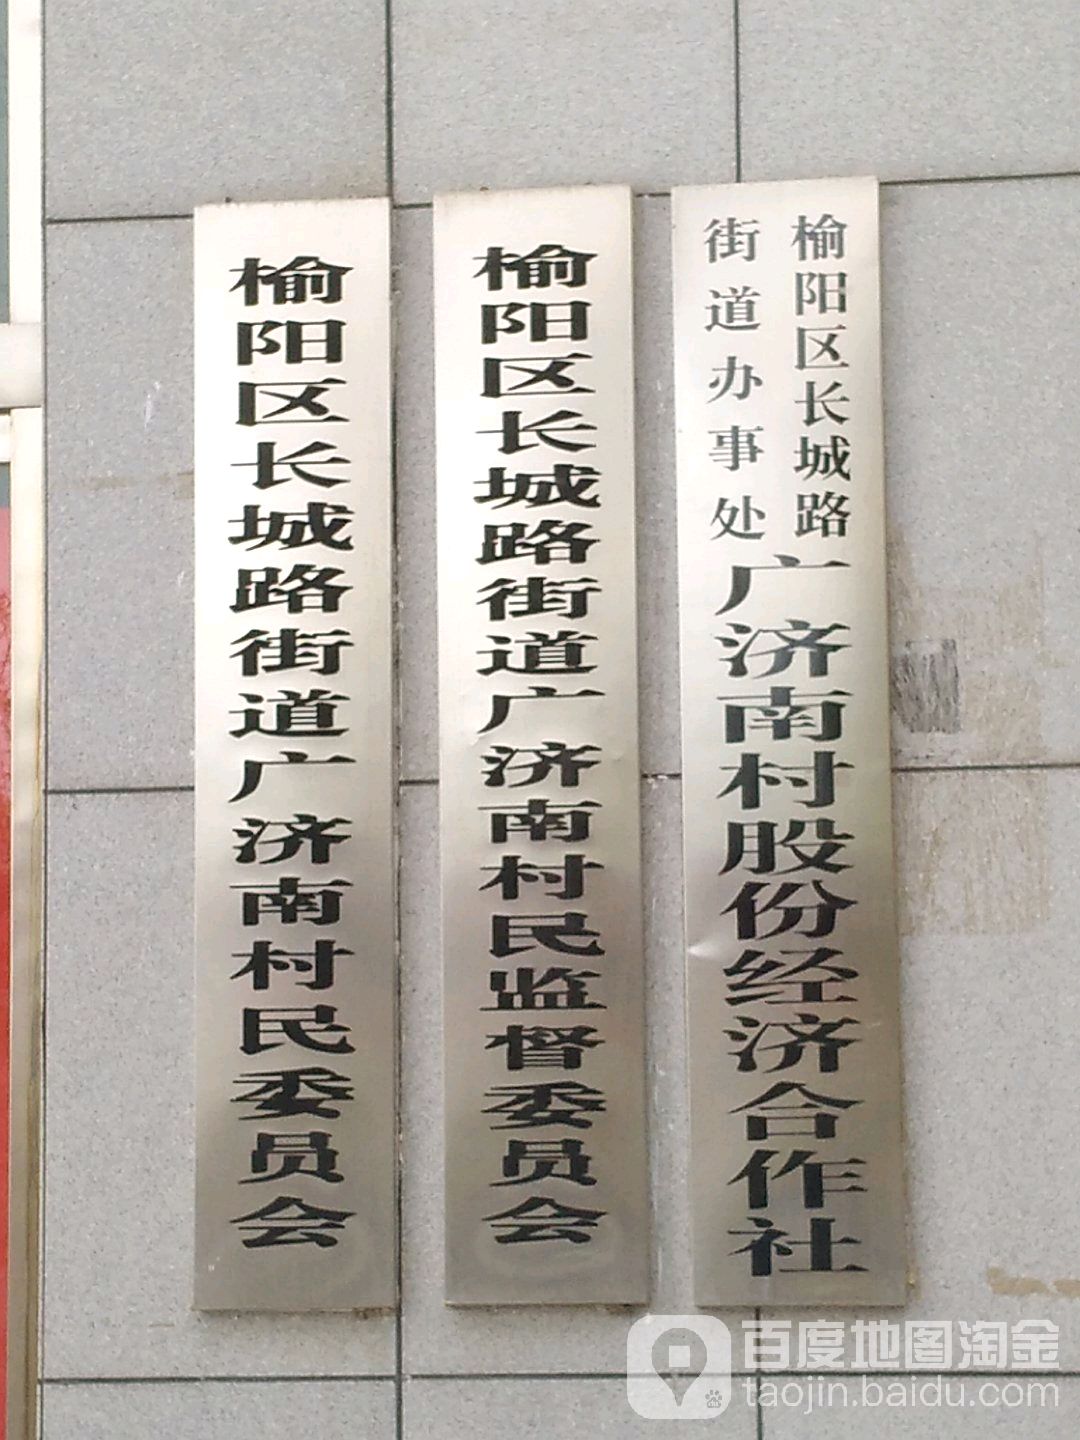 榆阳区长城路街道广济南村民委员会
榆阳区长城路街道广济南村民监督委员会
榆阳区长城路
街道办事处
广济南村股份经济合作社
百度地图淘金
taojin.baidu.com